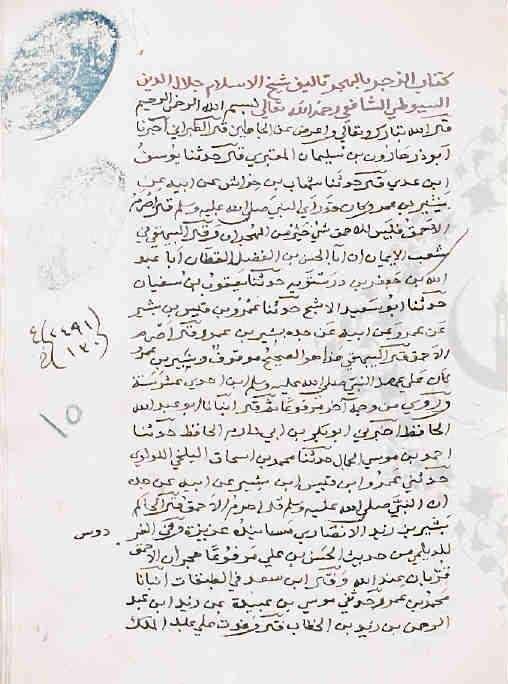 كتاب الزجر بالهجر تاليف شيخ الاسلام جلال الدين
السيوطي الشافعي رحمه الله تعالى بسم الله الرحمن الرحيم
قال الله تبارك وتعالى واعرض عن الجاهلين قال الطبراني اخبرنا
ابو ذر هارون بن سليمان المصري قال حدثنا يوسف
ابن عدي قال حدثنا شهاب بن خراش عن ابيه عن
يسير بن عمرو وكان قد راى النبي صلى الله عليه وسلم قال اصرم
الاحمق فليس للاحمق شي خير من الهجران وقال البيهقي في
شعب الايمان انا ابا الحسن بن الفضل القطان انا عبد
الله بن جعفر بن درستويه حدثنا يعقوب بن سفيان
حدثنا ابو سعيد الاشج حدثنا عمرو بن قيس بن يسير
عن عمرو عن ابيه عن جده يسير بن عمرو قال اصرم
الاحمق قال البيهقي هذا هو الصحيح موقوف ويسير بن عمرو
كان على عهد النبي صلى الله عليه وسلم ابن احدى عشر سنة
وروي من وجه آخر مرفوعا ثم قال انبانا ابو عبد الله
الحافظ اخبرني ابو بكر بن ابي دارم الحافظ حدثنا
احمد بن موسى الحمال حدثنا محمد بن اسحاق البلخي اللولوي
حدثني عمرو ابن قيس ابن يسير عن ابيه عن جده
ان النبي صلى الله عليه وسلم قال اصرم الاحمق قال الحاكم
بشير بن زيد الانصاري مسانيده عزيزة وفي الفر
دوس
للديلمي من حديث الحسن بن علي مرفوعا هجران الاحمق
قربان عند الله وقال ابن سعد في الطبقات انبانا
محمد بن عمرو حدثني موسى بن عبيدة عن زيد ابن عبد
الرحمن بن زيد بن الخطاب قال وفدت على عبد الملك
(٢٤٩١)
(١٣٠)
١٥